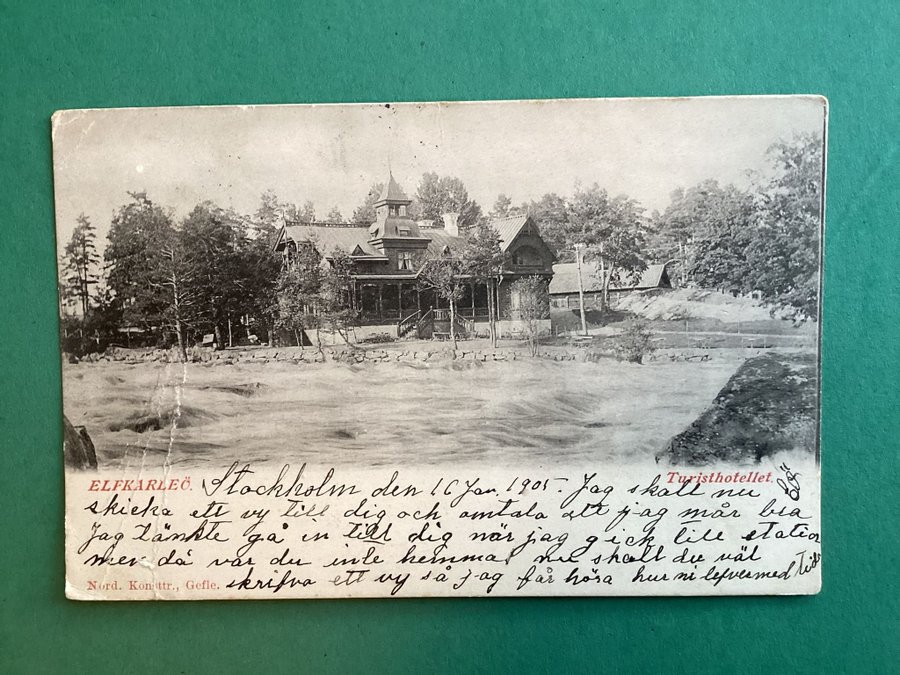 ELFKARLEÖ.
Turisthotellet.
Stockholm den 16 Jan. 1905. Jag skall nu
skicka ett vy till dig och omtala att jag mår bra
Jag tänkte gå in till dig när jag gick till station
men då var du inte hemma, nu skall du väl
skrifva ett vy så jag får höra hur ni lefver med
Nord. Konsttr., Gefle.